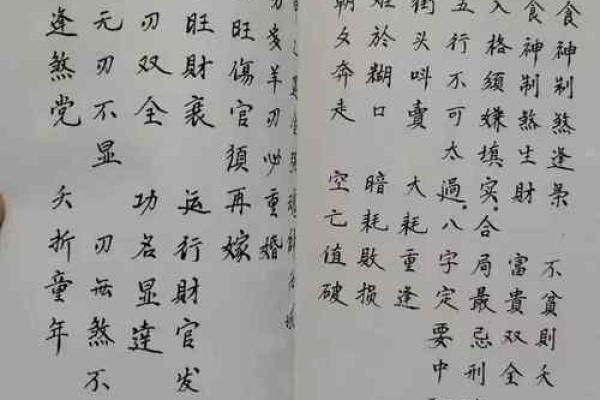 食神制煞逢枭 不貧則夭
食神制煞生財 富貴双全
入格须嫌填实 合局最忌刑
五行不可太過 八字定要中
街头叫賣 大耗重逢
於糊口 暗耗敗损
朝夕奔走 空亡值破
多羊刃必重婚
旺傷官須再嫁
旺財衰 运行財官发
刃双全 功名显達
无刃不显 刃無煞不
逢煞党 夭折童年